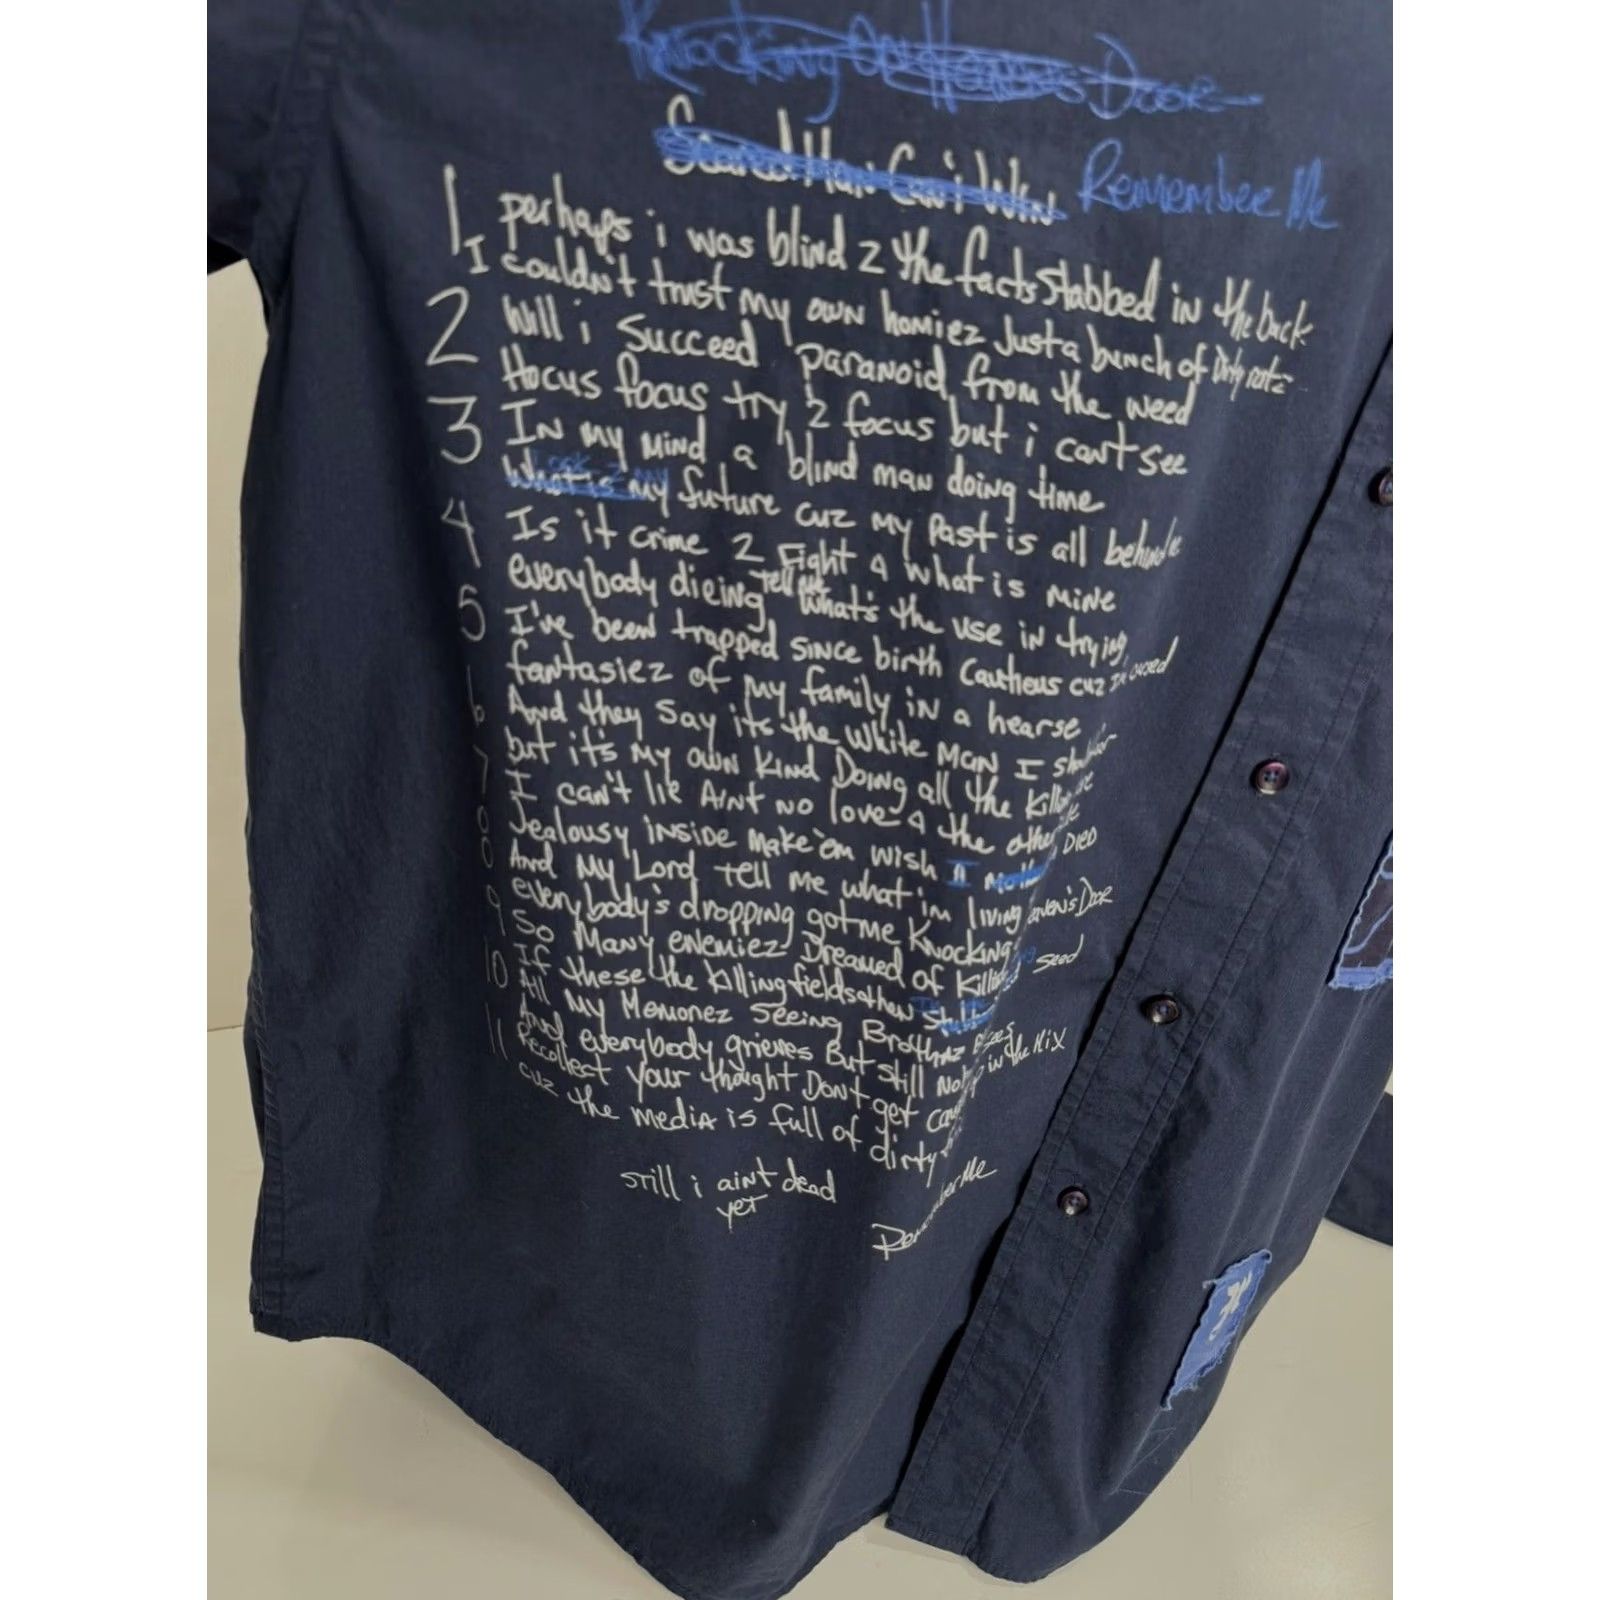 Knocking On Heavens Door
Scared Man Can't Win Remember Me
1 perhaps i was blind 2 the facts stabbed in the back
I couldn't trust my own homiez Just a bunch of Dirty ratz
2 Will i succeed paranoid from the weed
Hocus focus try 2 focus but i can't see
3 In my mind a blind man doing time
Look 2 my
What is my future cuz my past is all behind me
4 Is it crime 2 Fight 4 what is mine
everybody dieing Tell me what's the use in trying
5 I've been trapped since birth Cautious cuz I'm cursed
fantasiez of my family in a hearse
6 And they say its the white man I should
but it's my own kind Doing all the killin
7 I can't lie Aint no love 4 the other
Jealousy inside make em wish I Died
8 And my Lord tell me what im living
everybody's dropping got me Knocking Heaven's Door
9 So Many enemiez Dreamed of killing seed
If these the killing fields then
10 All My Memoriez Seeing Brothaz
And everybody grieves But still No
11 Recollect your thought Don't get in the Mix
cuz the media is full of dirty
still i aint dead
yet
Remember Me